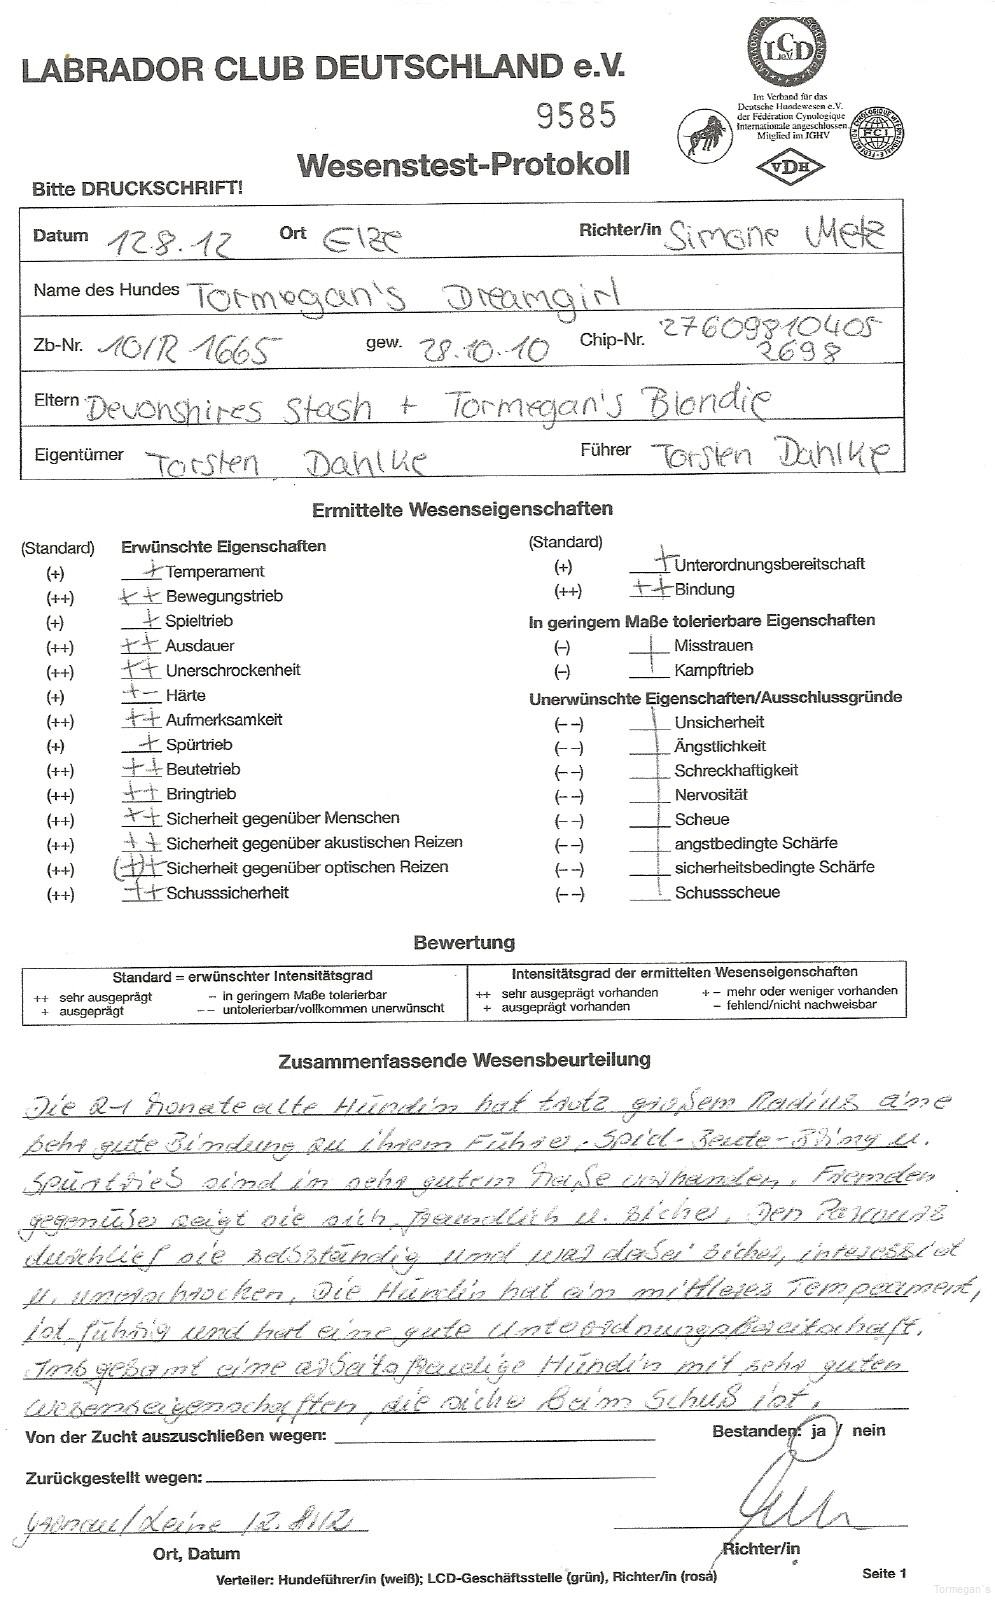 LABRADOR CLUB DEUTSCHLAND e.V.
LCD
e.V.
Im Verband für das
Deutsche Hundewesen e.V.
der Fédération Cynologique
Internationale angeschlossen
Mitglied im JGHV
FCI
VDH
9585
Wesenstest-Protokoll
Bitte DRUCKSCHRIFT!
Datum 12.8.12 Ort Elze Richter/in Simone Metz
Name des Hundes Tormegan's Dreamgirl
Zb-Nr. 10/R 1665 gew. 28.10.10 Chip-Nr. 27609810405
2698
Eltern Devonshires Stash + Tormegan's Blondie
Eigentümer Torsten Dahlke Führer Torsten Dahlke
Ermittelte Wesenseigenschaften
(Standard) Erwünschte Eigenschaften
(+) + Temperament
(++) ++ Bewegungstrieb
(+) + Spieltrieb
(++) ++ Ausdauer
(++) ++ Unerschrockenheit
(+) +- Härte
(++) ++ Aufmerksamkeit
(+) + Spürtrieb
(++) ++ Beutetrieb
(++) ++ Bringtrieb
(++) ++ Sicherheit gegenüber Menschen
(++) ++ Sicherheit gegenüber akustischen Reizen
(++) (+)+ Sicherheit gegenüber optischen Reizen
(++) ++ Schusssicherheit
(Standard)
(+) + Unterordnungsbereitschaft
(++) ++ Bindung
In geringem Maße tolerierbare Eigenschaften
(-) Misstrauen
(-) Kampftrieb
Unerwünschte Eigenschaften/Ausschlussgründe
(--) Unsicherheit
(--) Ängstlichkeit
(--) Schreckhaftigkeit
(--) Nervosität
(--) Scheue
(--) angstbedingte Schärfe
(--) sicherheitsbedingte Schärfe
(--) Schussscheue
Bewertung
Standard = erwünschter Intensitätsgrad
++ sehr ausgeprägt - in geringem Maße tolerierbar
+ ausgeprägt -- untolerierbar/vollkommen unerwünscht
Intensitätsgrad der ermittelten Wesenseigenschaften
++ sehr ausgeprägt vorhanden +- mehr oder weniger vorhanden
+ ausgeprägt vorhanden - fehlend/nicht nachweisbar
Zusammenfassende Wesensbeurteilung
Die 21 Monate alte Hündin hat trotz großem Radius eine
sehr gute Bindung zu ihrem Führer. Spiel- Beute- Bring u.
Spürtrieb sind in sehr gutem Maße vorhanden. Fremden
gegenüber zeigt sie sich freundlich u. sicher. Den Parcours
durchlief sie selbständig und war dabei sicher, interessiert
u. unerschrocken. Die Hündin hat ein mittleres Temperament,
ist führig und hat eine gute Unterordnungsbereitschaft.
Insgesamt eine arbeitsfreudige Hündin mit sehr guten
Wesenseigenschaften, die sicher beim Schuß ist.
Von der Zucht auszuschließen wegen: Bestanden: ja / nein
Zurückgestellt wegen:
Gronau/Leine 12.8.12
Ort, Datum Richter/in
Verteiler: Hundeführer/in (weiß); LCD-Geschäftsstelle (grün), Richter/in (rosa) Seite 1
Tormegan's